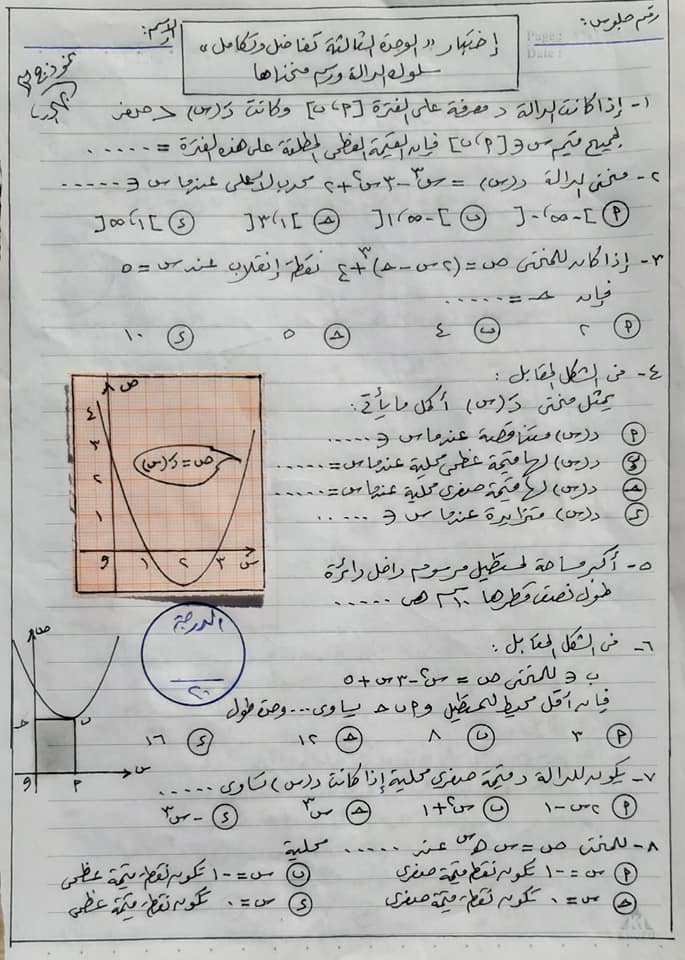 رقم جلوس:
الاسم:
إختبار « الوحدة الثالثة تفاضل وتكامل »
سلوك الدالة ورسم منحناها
نموذج ٣
Page:
Date:
١- إذا كانت الدالة د معرفة على الفترة [٢،ب] وكانت دَ(س) > صفر
لجميع قيم س ∈ [٢،ب] فإن القيمة العظمى المطلقة على هذه الفترة = .....
٢- منحنى الدالة د(س) = س٣ - ٣س٢ + ٢ محدب لأعلى عندما س ∈ .....
(٢) ]-∞،٠[ (ب) ]-∞،١[ (حـ) ]١،٣[ (ء) ]١،∞[
٣- إذا كان للمنحنى ص = (٢س - حـ)٣ + ٤ نقطة إنقلاب عند س = ٥
فإن حـ = .....
(٢) ٢ (ب) ٤ (حـ) ٥ (ء) ١٠
٤- فى الشكل المقابل:
يمثل منحنى دَ(س) أكمل ما يأتى:
(٢) د(س) متناقصة عندما س ∈ .....
(ب) د(س) لها قيمة عظمى محلية عندما س = .....
(حـ) د(س) لها قيمة صغرى محلية عندما س = .....
(ء) د(س) متزايدة عندما س ∈ .....
ص
٤
٣
٢
١
ص = دَ(س)
و ١ ٢ ٣ س
٥- أكبر مساحة لمستطيل مرسوم داخل دائرة
طول نصف قطرها ١٠سم هى .....
الدرجة
٢٠
٦- فى الشكل المقابل:
ب ∈ للمنحنى ص = س٢ - ٣س + ٥
فإن أقل محيط للمستطيل و٢ب حـ يساوى ... وحدة طول
(٢) ٣ (ب) ٨ (حـ) ١٢ (ء) ١٦
ص
حـ ب
و ٢ س
٧- يكون للدالة د قيمة صغرى محلية إذا كانت د(س) تساوى .....
(٢) ٢س - ١ (ب) س٢ + ١ (حـ) س٣ (ء) -س٣
٨- للمنحنى ص = س هـ^س عند ..... محلية
(٢) س = -١ تكون نقطة قيمة صغرى (ب) س = -١ تكون نقطة قيمة عظمى
(حـ) س = ٠ تكون نقطة قيمة صغرى (ء) س = ٠ تكون نقطة قيمة عظمى